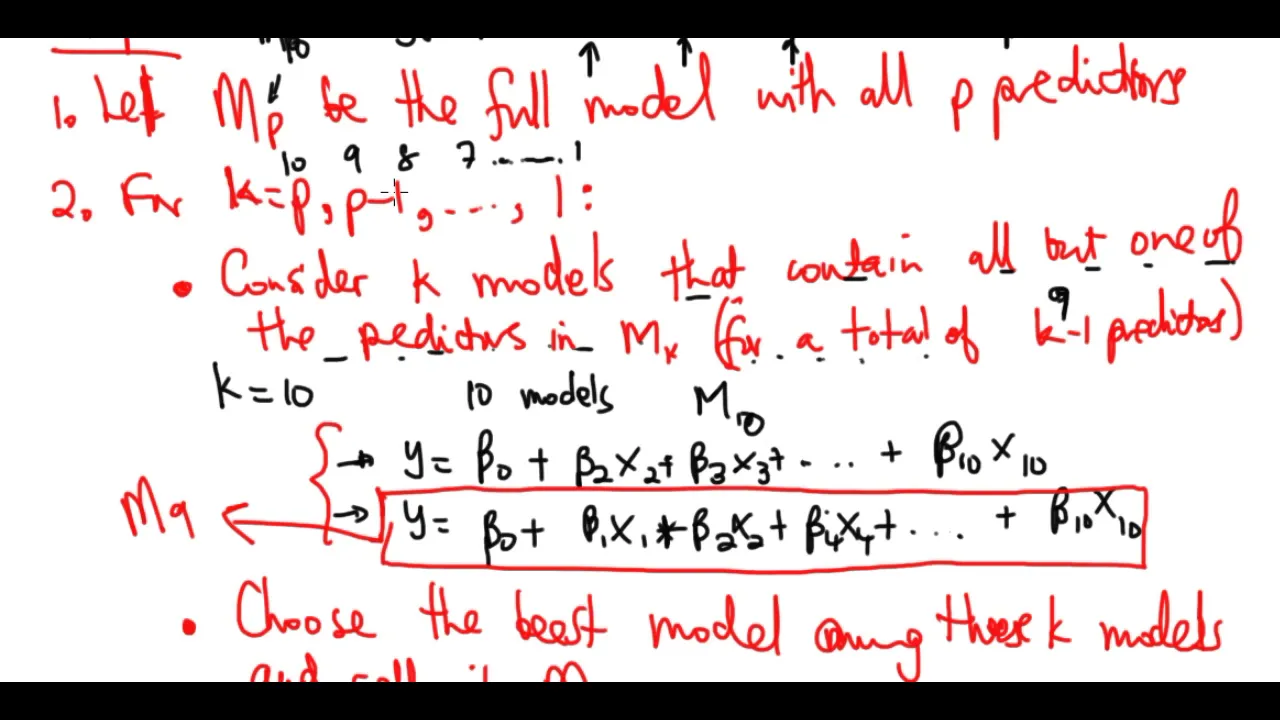 1. Let Mp be the full model with all p predictors
10 9 8 7 ...... 1
2. For k=p, p-1, ...., 1:
• Consider k models that contain all but one of
9
the predictors in Mk (for a total of k-1 predictors)
k=10 10 models M10
→ y= β0 + β2X2+ β3X3+ .... + β10X10
M9 → y= β0+ β1X1+β2X2+ β4X4+ .... + β10X10
• Choose the best model among these k models
and call it M